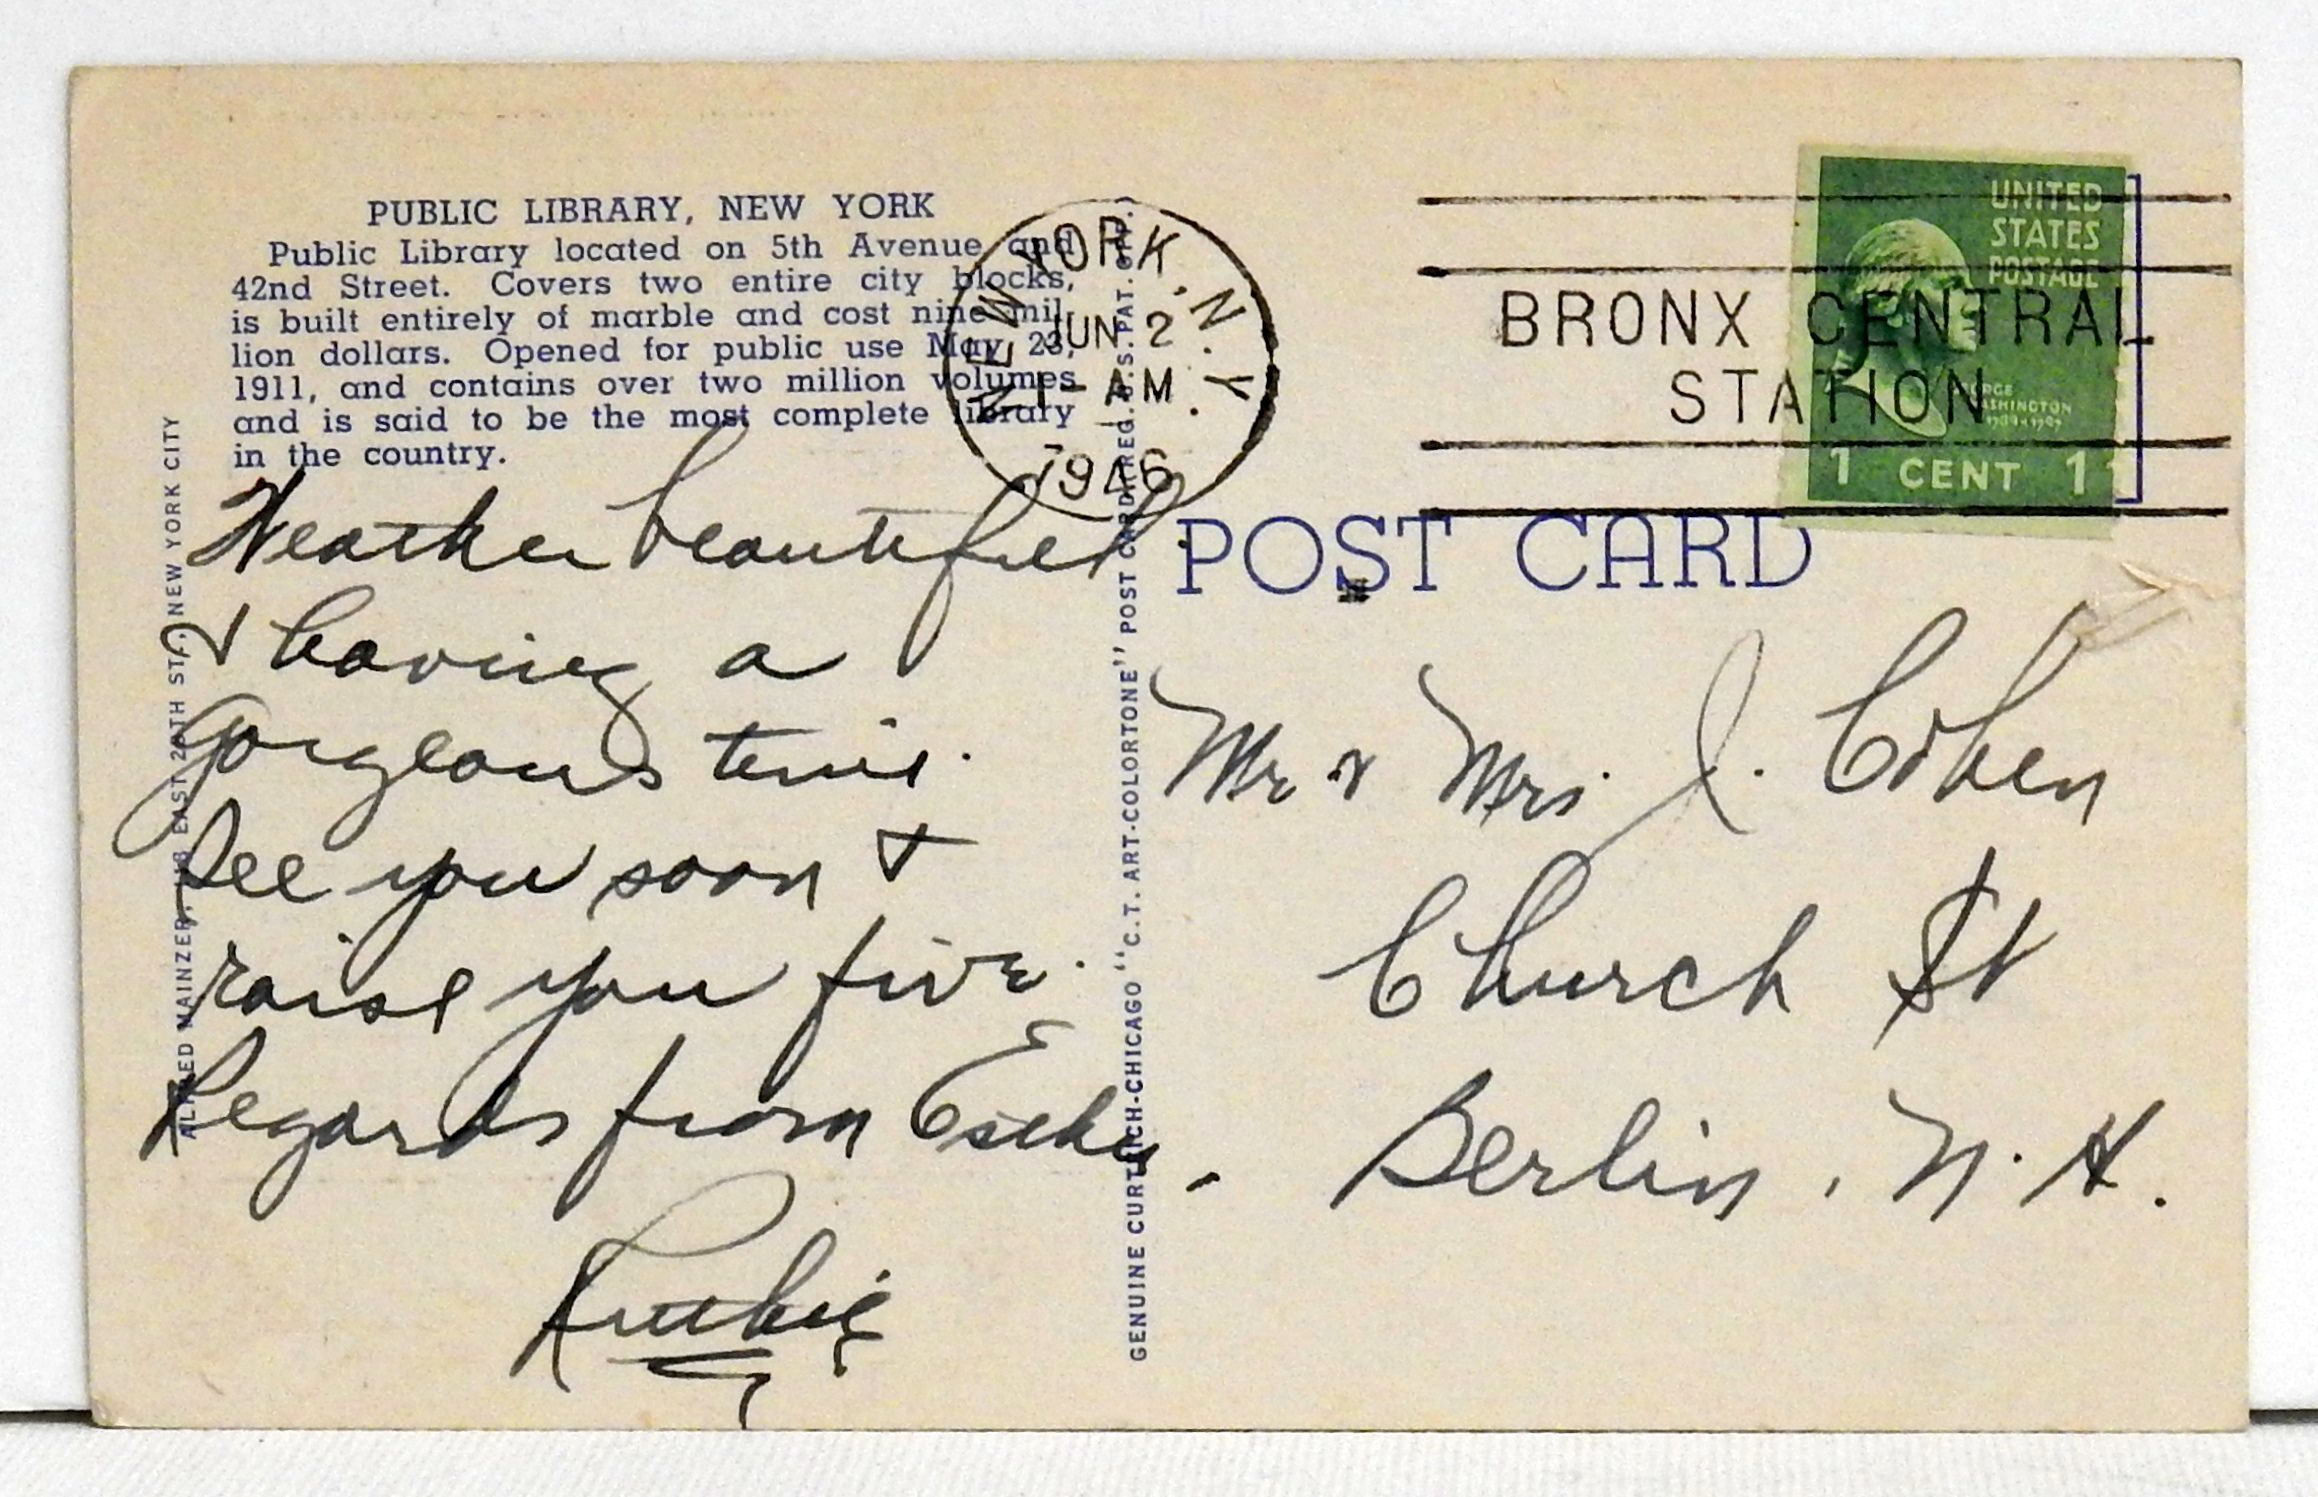 PUBLIC LIBRARY, NEW YORK
Public Library located on 5th Avenue and
42nd Street. Covers two entire city blocks,
is built entirely of marble and cost nine mil-
lion dollars. Opened for public use May 23,
1911, and contains over two million volumes
and is said to be the most complete library
in the country.
NEW YORK, N.Y.
JUN 2
1 - AM
1946
BRONX CENTRAL
STATION
UNITED
STATES
POSTAGE
GEORGE
WASHINGTON
1789-1797
1 CENT 1
POST CARD
Weather beautiful
& having a
gorgeous time.
See you soon &
raise you five.
Regards from
Ruthie
Mr & Mrs. J. Cohen
Church St
Berlin, N.H.
ALFRED MAINZER, EAST ST., NEW YORK CITY
GENUINE CURTEICH-CHICAGO "C.T. ART-COLORTONE" POST CARD (REG. U.S. PAT. OFF.)